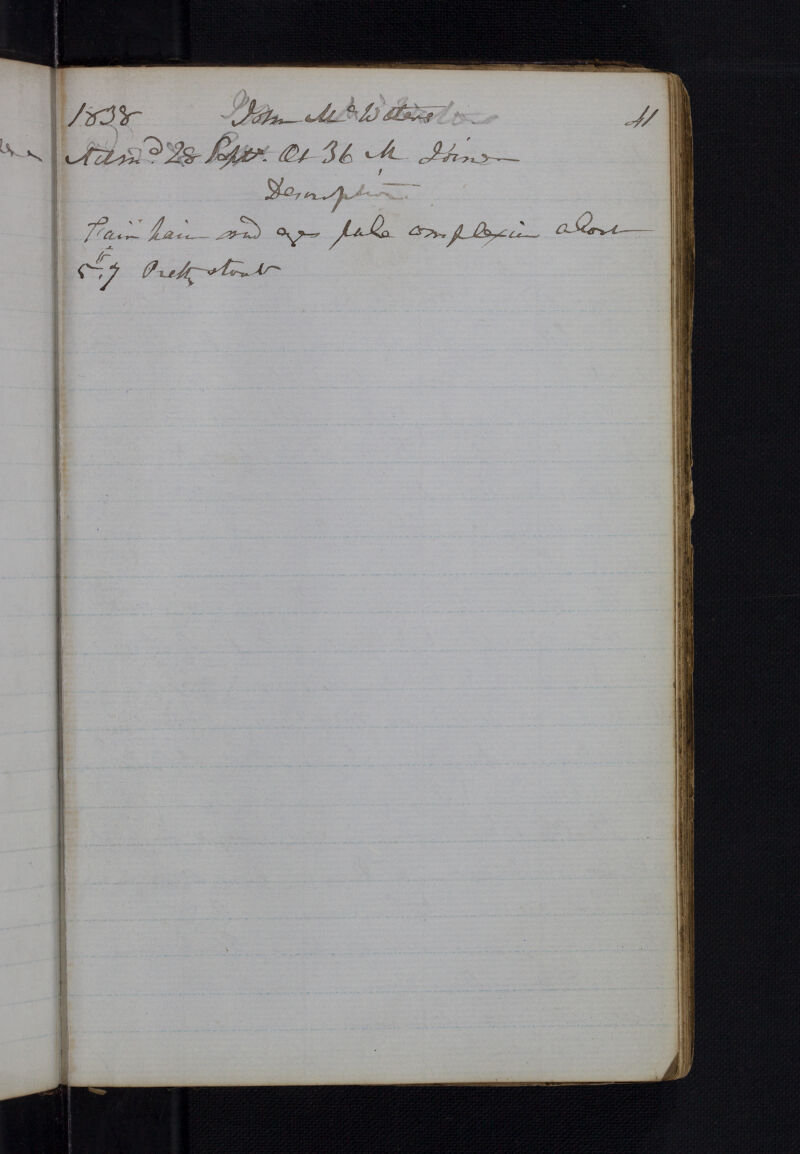 1838 John Mc 41
Admd. 28 Sept. At 36 M Joiner
Description
Fair hair and eyes pale complexion about
5ft. 7 Pretty stout